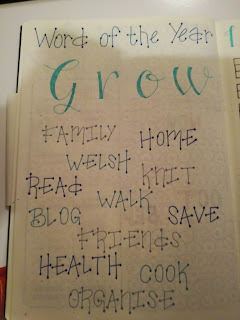 Word of the Year
Grow
FAMILY HOME
WELSH
READ KNIT
WALK
BLOG SAVE
FRIENDS
HEALTH COOK
ORGANISE